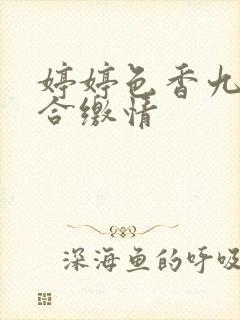 婷婷色香九
合缴情
深海鱼的呼吸